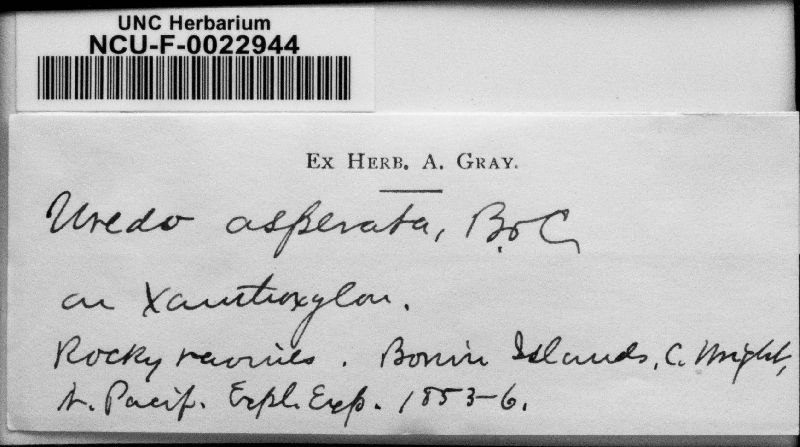 UNC Herbarium
NCU-F-0022944
Ex Herb. A. Gray.
Uredo asperata, B & C
on Xanthoxylon.
Rocky ravines. Bonin Islands, C. Wright,
N. Pacif. Expl. Exp. 1853-6.